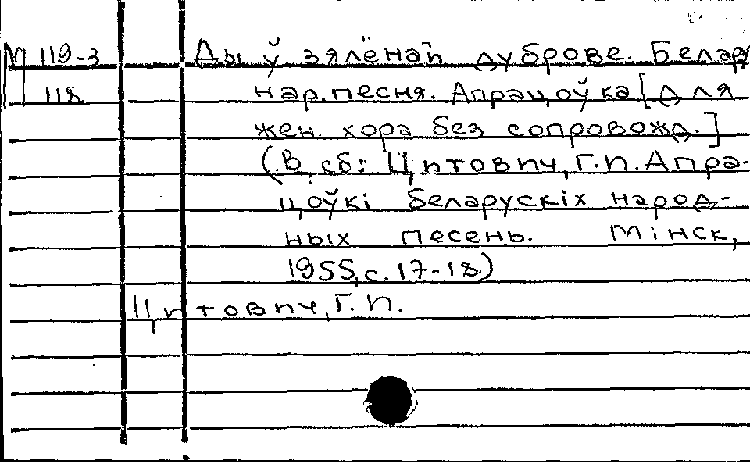 М 119-3 Ды ў зялёнай дуброве. Белар
118 нар. песня. Апрацоўка [для
жен. хора без сопровожд.]
(В сб: Цитович, Г.И. Апра-
цоўкі беларускіх народ-
ных песень. Мінск,
1955, с. 17-18)
Цитович, Г.И.